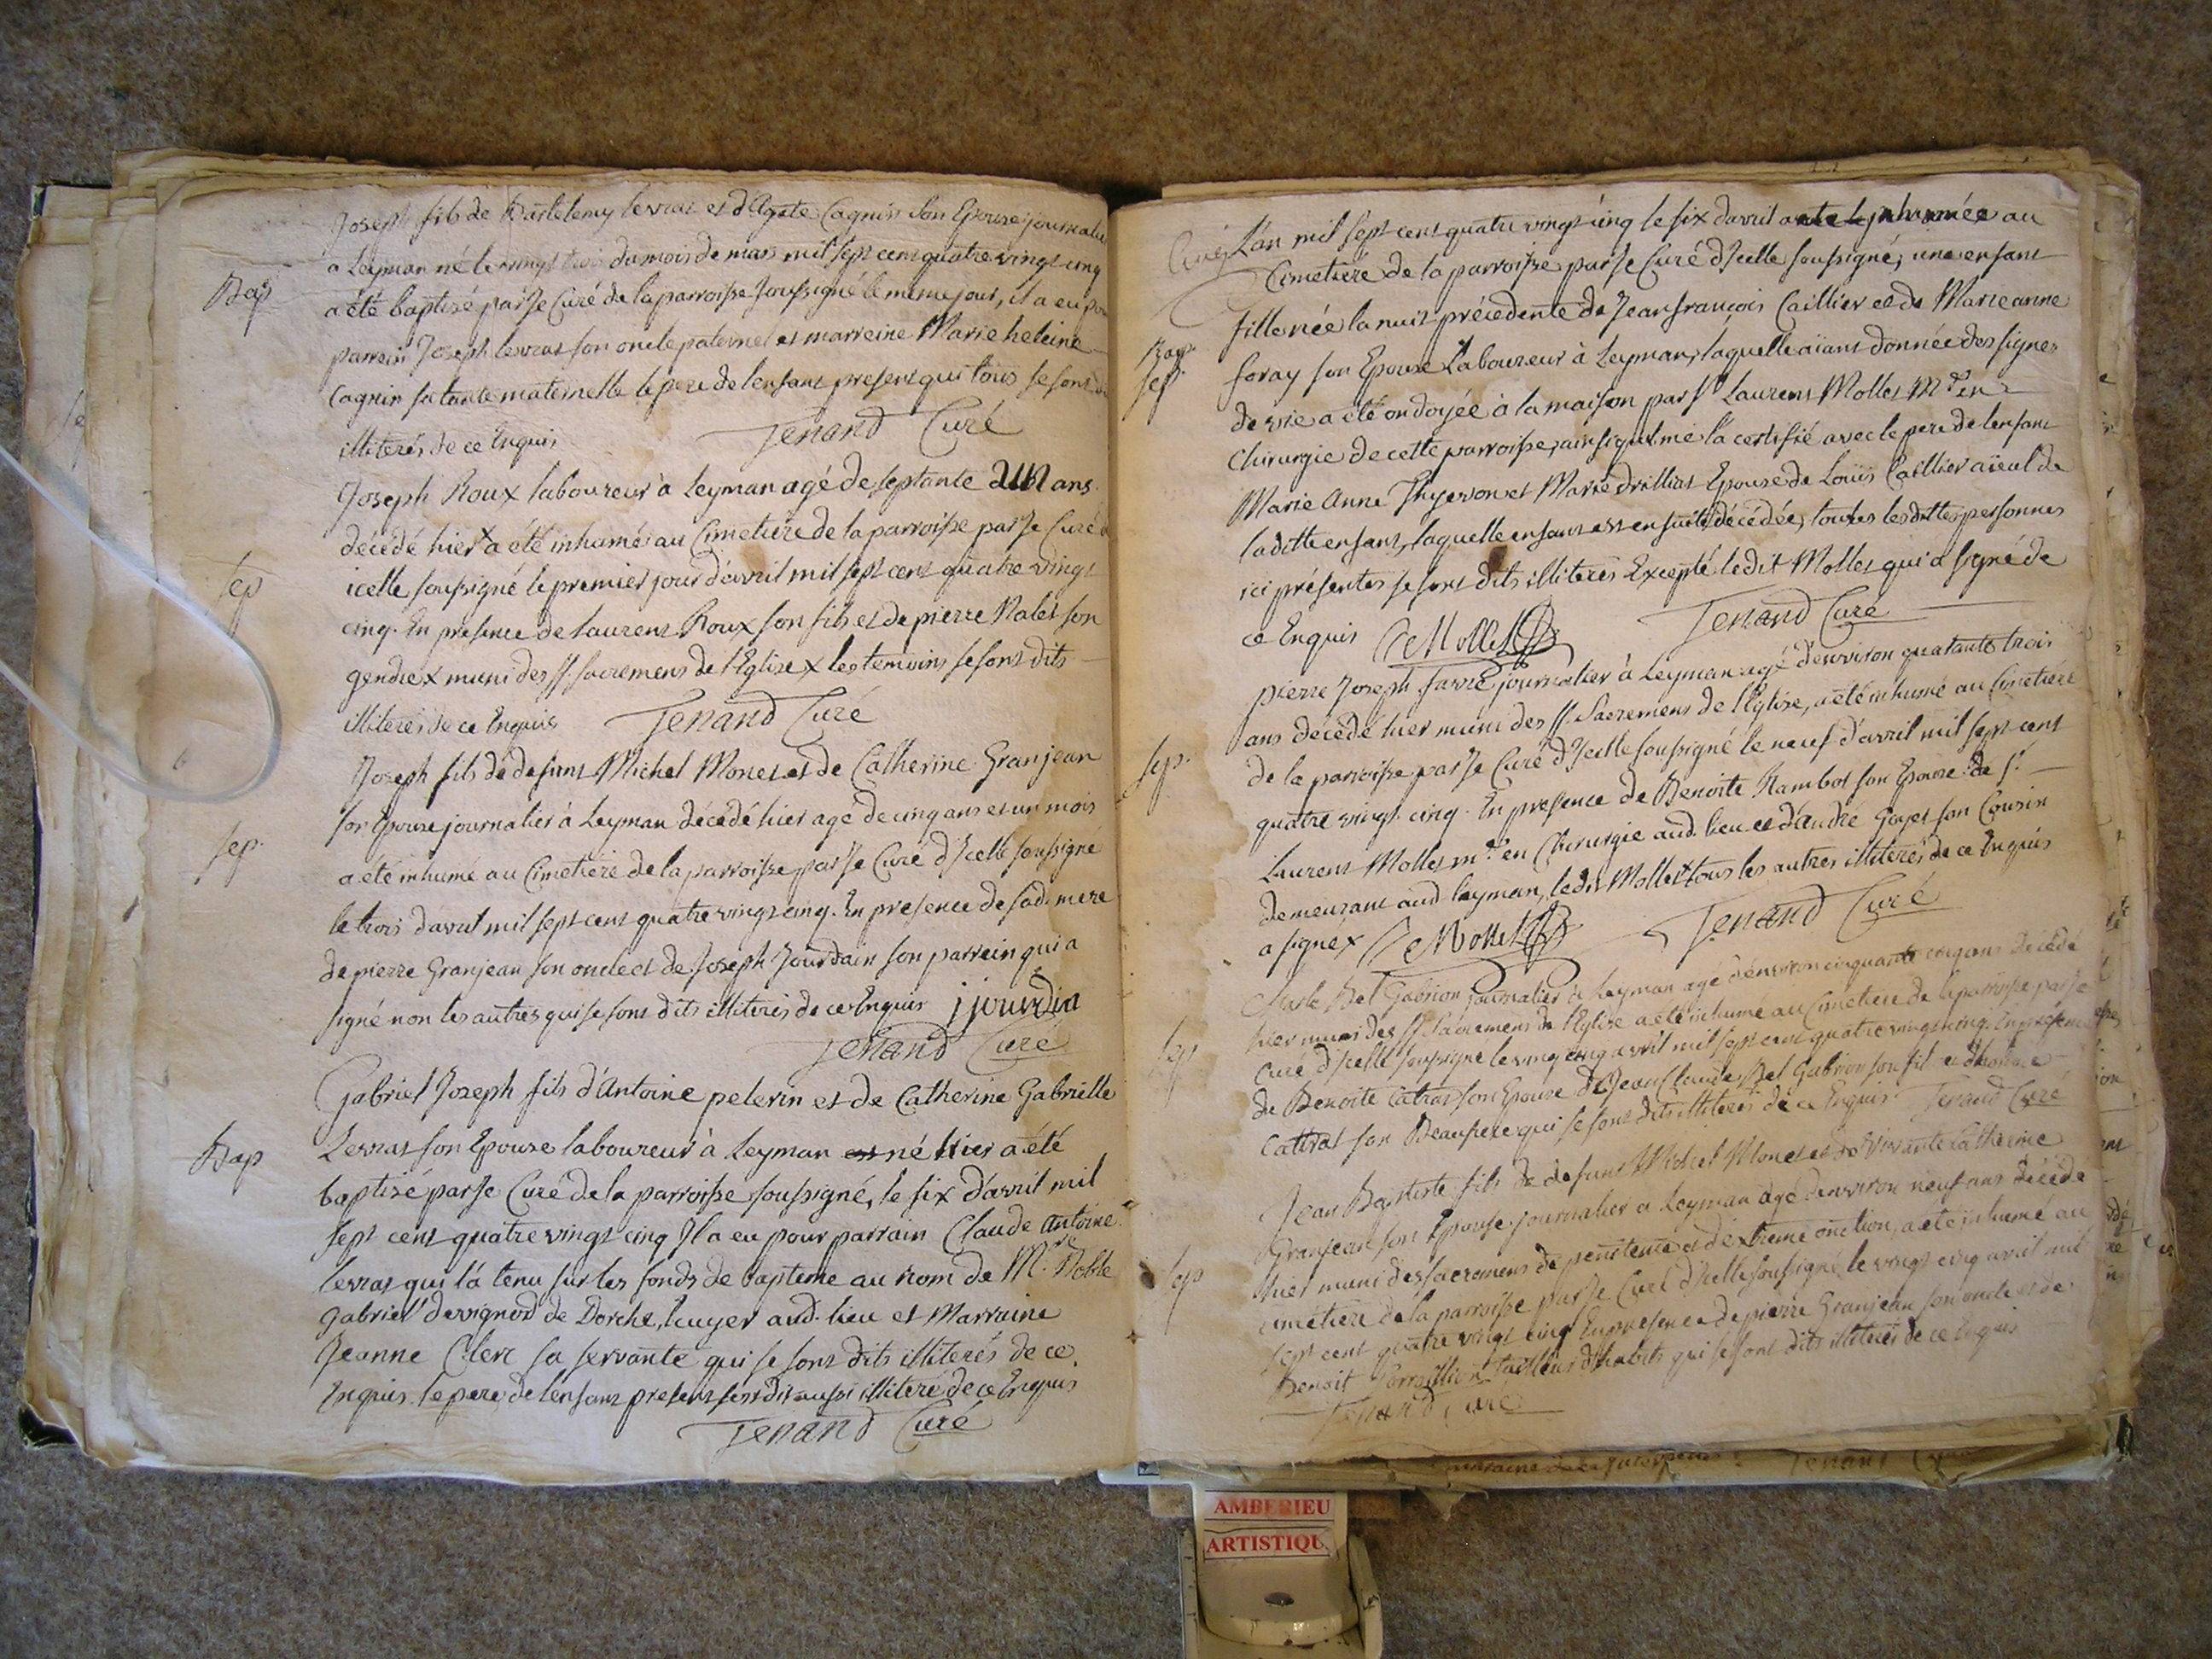 Joseph fils de Bartelemy Levrat et d'Agate Cagnin son Epouse journalier
a Leyman né le vingt trois du mois de mars mil sept cent quatre vingt cinq
Bap
a été baptisé par Je Curé de la parroisse soussigné le meme jour, il a eu pour
parrein Joseph Levrat son oncle paternel et marreine Marie heleine
Cagnin sa tante maternelle le pere de lenfant present qui tous se sont
illiterés de ce Enquis Tenand Curé
Joseph Roux laboureur à Leyman agé de septante d'un ans
décédé hier x a été inhumé au Cimetiere de la parroisse par Je Curé
Sep
icelle soussigné le premier jour d'avril mil sept cent quatre vingt
cinq. En presence de Laurent Roux son fils et de pierre Nalet son
gendre x muni des SS. sacremens de l'Eglise x les temoins se sont dits
illiterés de ce Enquis Tenand Curé
Joseph fils de defunt Michel Monet et de Catherine Granjean
son Epouse journalier à Leyman décédé hier agé de cinq ans et un mois
Sep.
a été inhumé au Cimetiere de la parroisse par Je Curé d'Jcelle soussigné
le trois d'avril mil sept cent quatre vingt cinq. En presence de sad. mere
de pierre Granjean son oncle et de Joseph Jourdain son parrein qui a
signé non les autres qui se sont dits illiterés de ce Enquis j jourdin
Tenand Curé
Gabriel Joseph fils d'Antoine pelerin et de Catherine Gabrielle
Bap
Levrat son Epouse laboureur à Leyman est né hier a été
baptizé par Je Curé de la parroisse soussigné, le six d'avril mil
sept cent quatre vingt cinq Jl a eu pour parrain Claude Antoine
Levrat qui l'a tenu sur les fonds de baptême au nom de Mre Noble
Gabriel devignod de Dorche, Ecuyer aud. lieu et Marraine
Jeanne Clerc sa servante qui se sont dits illiterés de ce
Enquis. le pere de lenfant present s'est dit aussi illiteré de ce Enquis
Tenand Curé
L'an mil sept cent quatre vingt cinq le six d'avril a été inhumée au
Cimetiere de la parroisse par Je Curé d'Jcelle soussigné, une enfant
fille née la nuit précedente de Jean françois Caillier et de Marie anne
Bap.
Sep.
foray son Epouse Laboureur à Leyman, laquelle aïant donnée des signes
de vie a été ondoyée à la maison par Sr Laurent Mollet Me En
Chirurgie de cette parroisse, ainsi qu'il me l'a certifié avec le pere de lenfant
Marie Anne Thyevon et Marie Drilliat Epouse de Louïs Caillier aïeul de
laditte enfant, laquelle enfant est ensuite décédée, toutes lesdittes personnes
ici présentes se sont dits illiterés Excepté ledit Mollet qui a signé de
ce Enquis Mollet Tenand Curé
pierre Joseph favre journalier à Leyman agé d'environ quarante trois
ans décédé hier muni des SS. Sacremens de l'Eglise, a été inhumé au Cimetiere
Sep.
de la parroisse par Je Curé d'Jcelle soussigné le neuf d'avril mil sept cent
quatre vingt cinq. En presence de Benoite Rambot son Epouse de Sr
Laurent Mollet me en Chirurgie aud. lieu et d'andré Goyet son Cousin
demeurant aud Leyman, ledit Mollet x tous les autres illiterés de ce Enquis
a signé x Mollet Tenand Curé
Bel Gabrion journalier à Leyman agé d'environ cinquante cinq ans décédé
hier muni des SS. Sacremens de l'Eglise a été inhumé au Cimetiere de la parroisse par Je
Sep
Curé d'Jcelle soussigné le vingt cinq avril mil sept cent quatre vingt cinq. En présence
de Benoite Catras son Epouse de Jean Claude Bel Gabrion son fil
Cattrat son Beaufrere qui se sont dits illiterés de ce Enquis Tenand Curé
Jean Baptiste fils de defunt Michel Monet et de vivante Catherine
Granjean son Epouse journalier a Leyman agé denviron neuf ans décédé
Sep
hier muni des sacremens de penitence et d'extreme onction, a été inhumé au
cimetiere de la parroisse par Je Curé d'Jcelle soussigné, le vingt cinq avril mil
sept cent quatre vingt cinq En presence de pierre Granjean son oncle et de
Benoit tailleur d'habits qui se sont dits illiterés de ce Enquis
Tenand Curé
AMBERIEU
ARTISTIQU